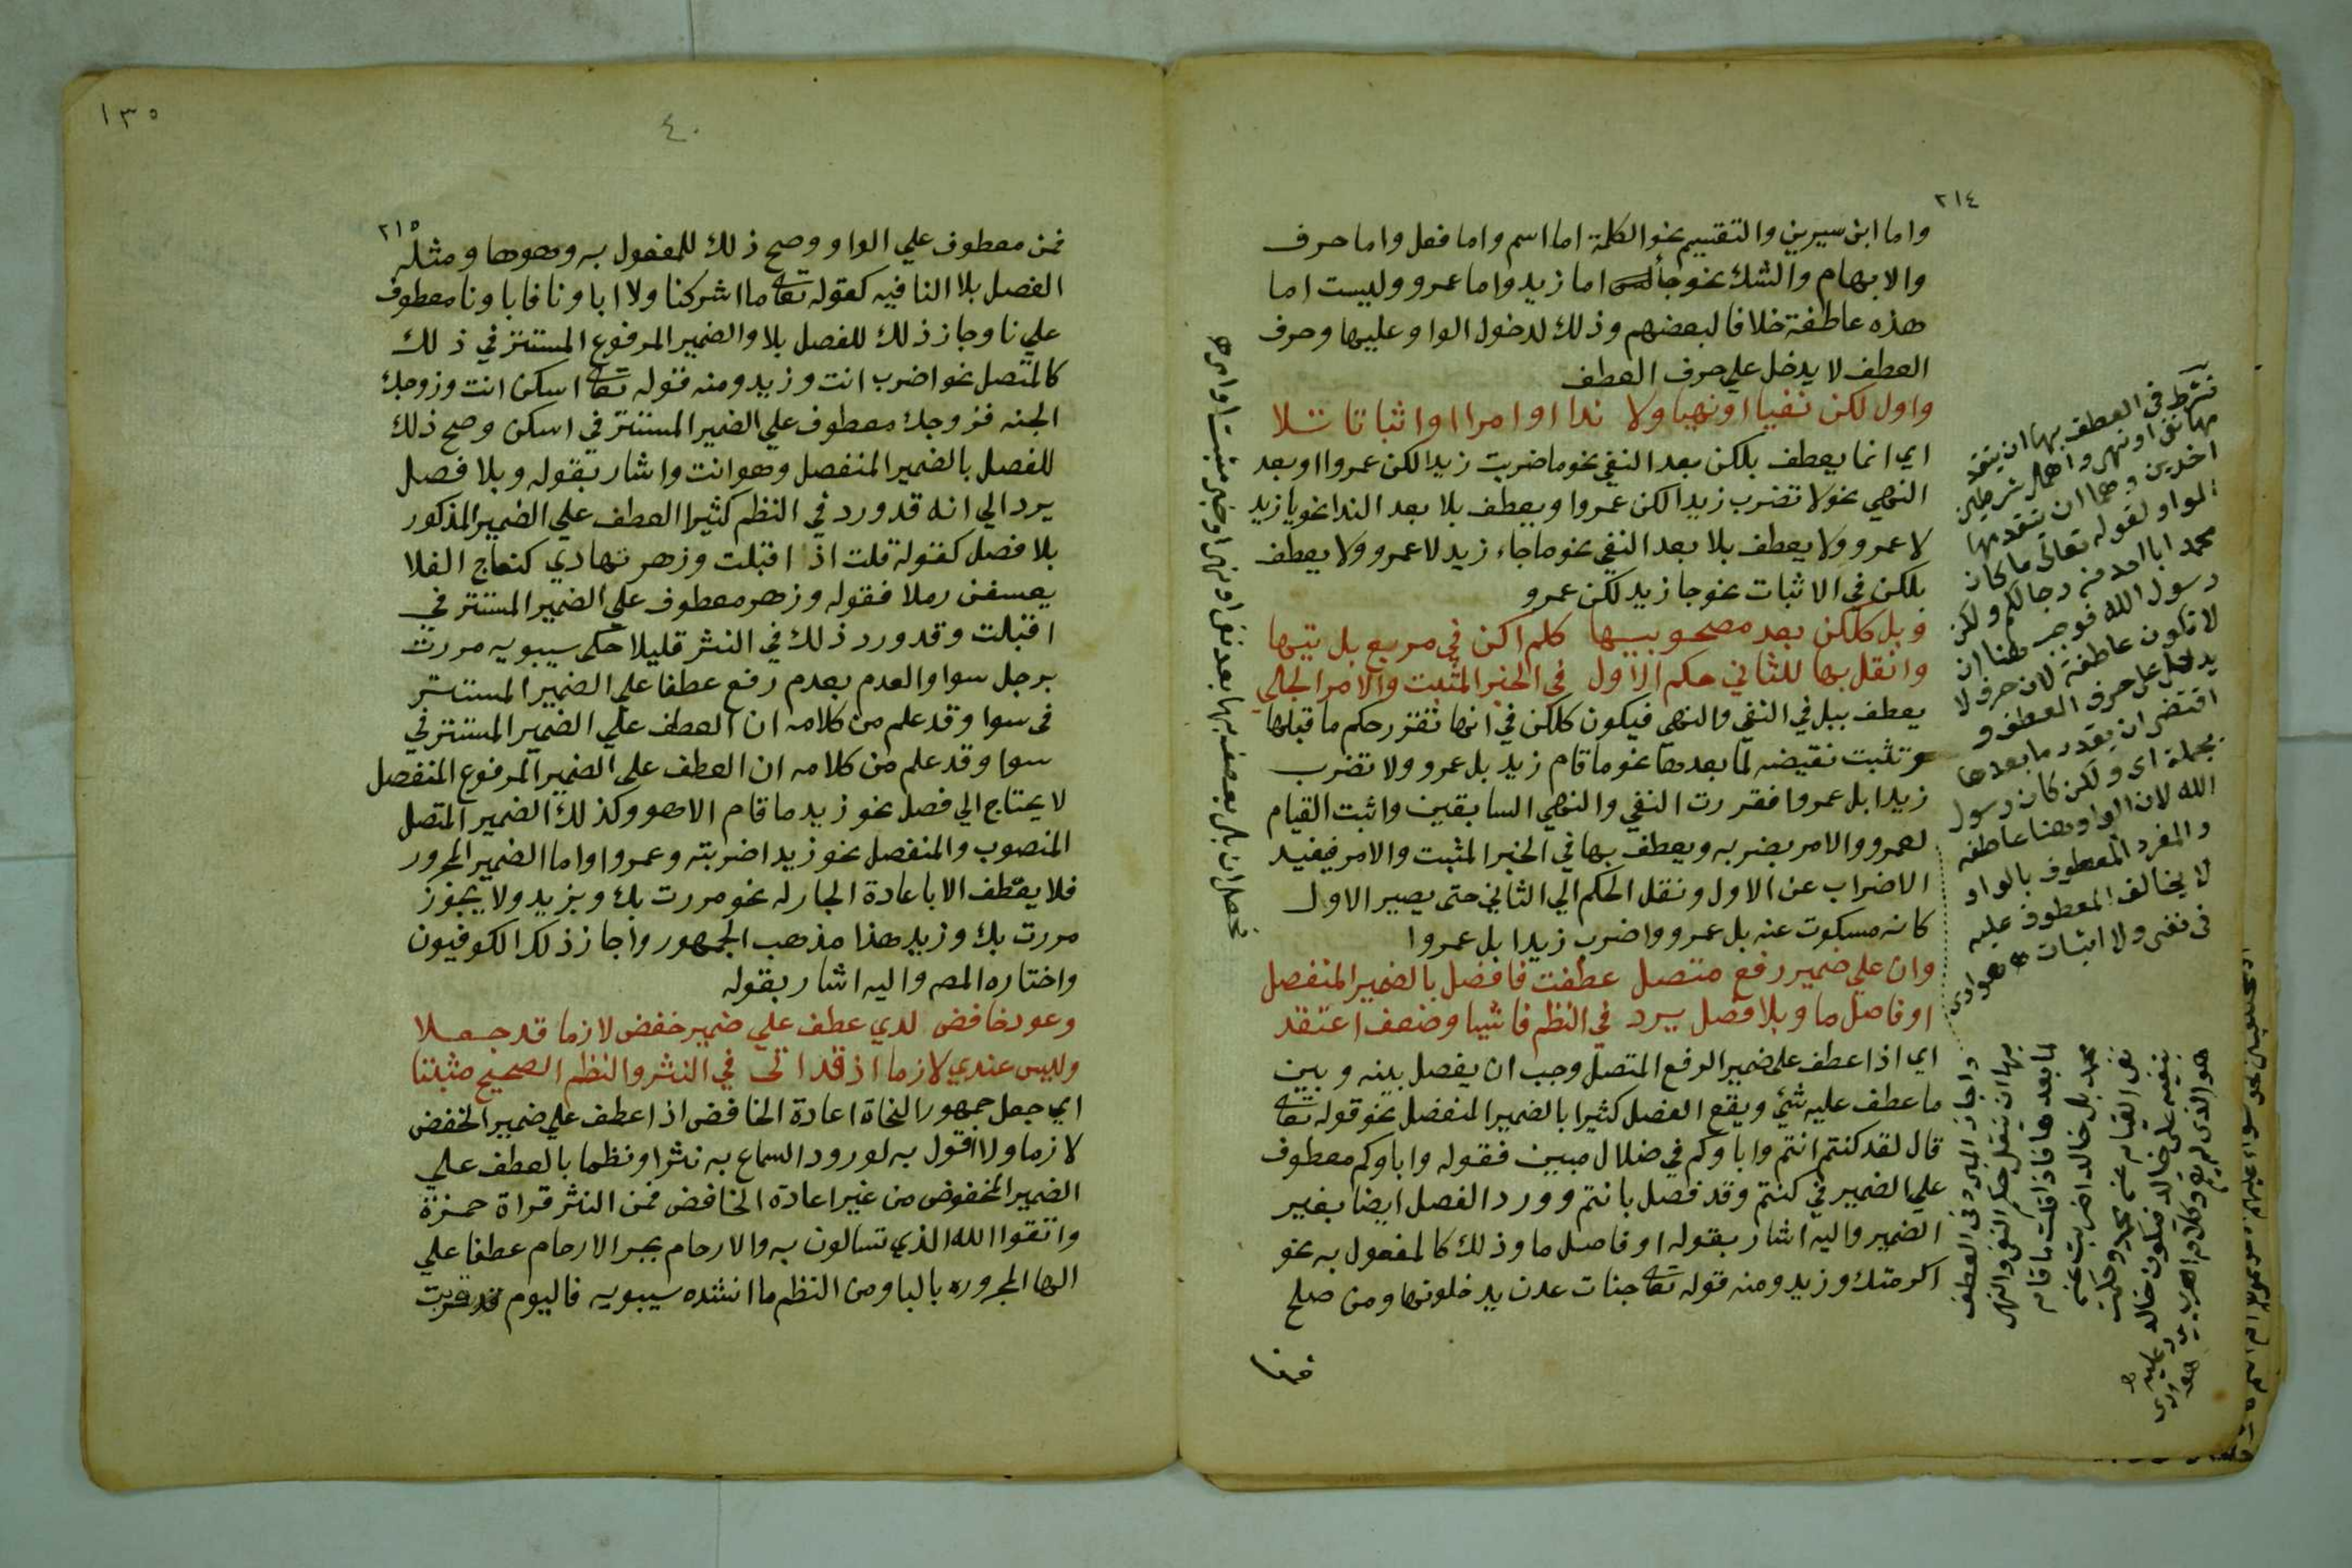 ٢١٤
واما ابن سيرين والتقسيم نحو الكلمة اما اسم واما فعل واما حرف
والابهام والشك نحو جأ اما زيد واما عمرو وليست اما
هذه عاطفة خلافا لبعضهم وذلك لدخول الواو عليها وحرف
العطف لا يدخل علي حرف العطف
واول لكن نفيا او نهيا ولا ندا او امرا او اثباتا تلا
اي انما يعطف بلكن بعد النفي نحو ما ضربت زيدا لكن عمروا او بعد
النهي نحو لا تضرب زيدا لكن عمروا ويعطف بلا بعد الندا نحو يا زيد
لا عمرو ولا يعطف بلا بعد النفي نحو ما جاء زيد لا عمرو ولا يعطف
بلكن في الاثبات نحو جا زيد لكن عمرو
وبل كلكن بعد مصحوبيها كلم اكن في مربع بل تيها
وانقل بها للثاني حكم الاول في الخبر المثبت والامر الجلي
يعطف ببل في النفي والنهي فيكون كلكن في انها تقرر حكم ما قبلها
وتثبت نقيضه لما بعدها نحو ما قام زيد بل عمرو ولا تضرب
زيدا بل عمروا فقررت النفي والنهي السابقين واثبت القيام
لعمرو والامر بضربه ويعطف بها في الخبر المثبت والامر فيفيد
الاضراب عن الاول ونقل الحكم الي الثاني حتى يصير الاول
كانه مسكوت عنه بل عمرو واضرب زيدا بل عمروا
وان علي ضمير رفع متصل عطفت فافصل بالضمير المنفصل
او فاصل ما وبلا فصل يرد في النظم فاشيا وضعف اعتقد
اي اذا عطف على ضمير الرفع المتصل وجب ان يفصل بينه وبين
ما عطف عليه شئ ويقع الفصل كثيرا بالضمير المنفصل نحو قوله تعالى
قال لقد كنتم انتم واباوكم في ضلال مبين فقوله واباوكم معطوف
علي الضمير في كنتم وقد فصل بانتم وورد الفصل ايضا بغير
الضمير واليه اشار بقوله او فاصل ما وذلك كالمفعول به نحو
اكرمتك وزيد ومنه قوله تعالى جنات عدن يدخلونها ومن صلح
فمن
تشترط في العطف بها ان يتقد
مها نفي او نهي واهمل شرطين
اخرين وهما ان يتقدمها
الواو لقوله تعالى ما كان
محمد ابا احد من رجالكم ولكن
رسول الله فوجب هنا ان
لا تكون عاطفة لان حرف لا
يدخل على حرف العطف و
اقتضى ان يقدر ما بعدها
بجملة اي ولكن كان رسول
الله لان الواو هنا عاطفه
والمفرد المعطوف بالواو
لا يخالف المعطوف عليه
في نفي ولا اثبات هوارى
واجاز المبرد في العطف
بها ان تنقل حكم النفي والنهي
لما بعدها فاذا قلت ما قام
محمد بل خالد اضربت عن
نفي القيام عن محمد وحكمت
بنفيه على خالد فيكون خالد
هو الذي لم يقم
١٣٥
٤٠
٢١٥
فمن معطوف علي الواو وصح ذلك للمفعول به وهوها ومثله
الفصل بلا النافيه كقوله تعالى ما اشركنا ولا اباونا فاباونا معطوف
علي نا وجاز ذلك للفصل بلا والضمير المرفوع المستتر في ذلك
كالمتصل نحو اضرب انت وزيد ومنه قوله تعالى اسكن انت وزوجك
الجنه فزوجك معطوف علي الضمير المستتر في اسكن وصح ذلك
للفصل بالضمير المنفصل وهو انت واشار بقوله وبلا فصل
يرد الي انه قد ورد في النظم كثيرا العطف علي الضمير المذكور
بلا فصل كقوله قلت اذ اقبلت وزهر تهادي كنعاج الفلا
يعسفن رملا فقوله وزهر معطوف علي الضمير المستتر في
اقبلت وقد ورد ذلك في النثر قليلا حكى سيبويه مررت
برجل سوا والعدم بعدم رفع عطفا علي الضمير المستتر
في سوا وقد علم من كلامه ان العطف علي الضمير المستتر في
سوا وقد علم من كلامه ان العطف على الضمير المرفوع المنفصل
لا يحتاج الي فصل نحو زيد ما قام الا هو وكذلك الضمير المتصل
المنصوب والمنفصل نحو زيد اضربته وعمروا واما الضمير المجرور
فلا يعطف الا باعادة الجار له نحو مررت بك وبزيد ولا يجوز
مررت بك وزيد هذا مذهب الجمهور واجاز ذلك الكوفيون
واختاره المص واليه اشار بقوله
وعود خافض لدي عطف علي ضمير خفض لازما قد جعلا
وليس عندي لازما اذ قد اتى في النثر والنظم الصحيح مثبتا
اي جعل جمهور النحاة اعادة الخافض اذا عطف علي ضمير الخفض
لازما ولا اقول به لورود السماع به نثرا ونظما بالعطف علي
الضمير المخفوض من غير اعادة الخافض فمن النثر قراة حمزة
واتقوا الله الذي تسالون به والارحام بجر الارحام عطفا علي
الها المجروره بالبا ومن النظم ما انشده سيبويه فاليوم قد قربت